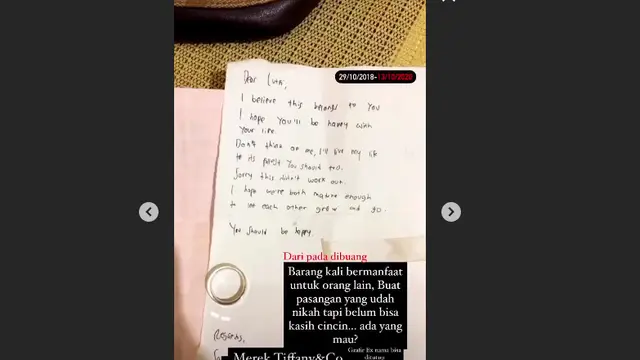 29/10/2018-13/10/2020
Dear
I believe this belongs to you
I hope you'll be happy with
your life.
Don't think of me, I'll live my life
to its You should too.
Sorry this didn't work out.
I hope we're both mature enough
to let each other and go.
You should be happy.
Dari pada dibuang
Barang kali bermanfaat
untuk orang lain, Buat
pasangan yang udah
nikah tapi belum bisa
kasih cincin... ada yang
mau?
Regards,
Merek Tiffany&Co
Grafir Ex nama bisa